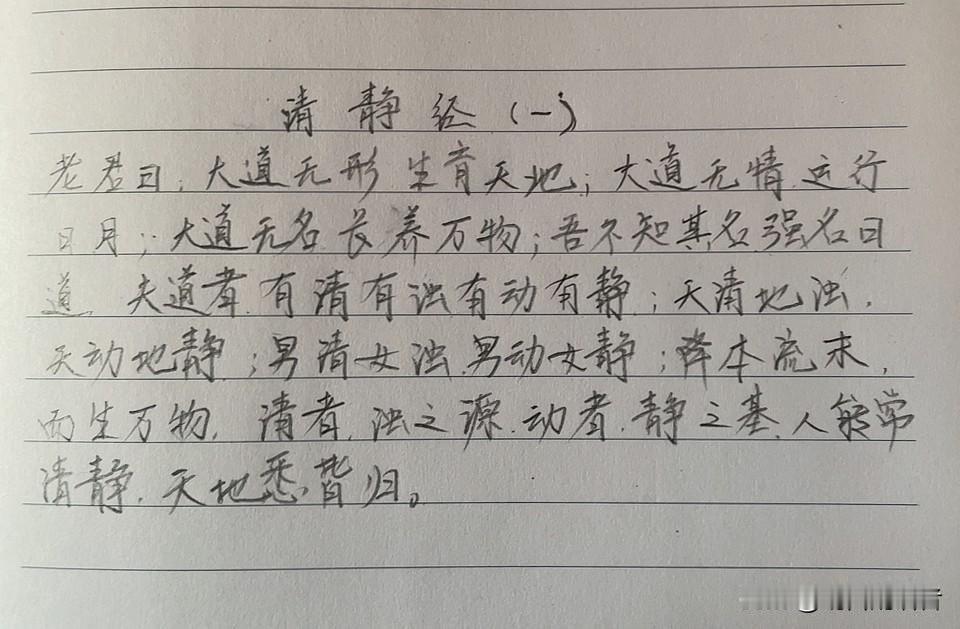 清静经(一)
老君曰:大道无形,生育天地;大道无情,运行
日月;大道无名,长养万物;吾不知其名,强名曰
道。夫道者,有清有浊,有动有静;天清地浊,
天动地静;男清女浊,男动女静;降本流末,
而生万物。清者,浊之源,动者,静之基,人能常
清静,天地悉皆归。